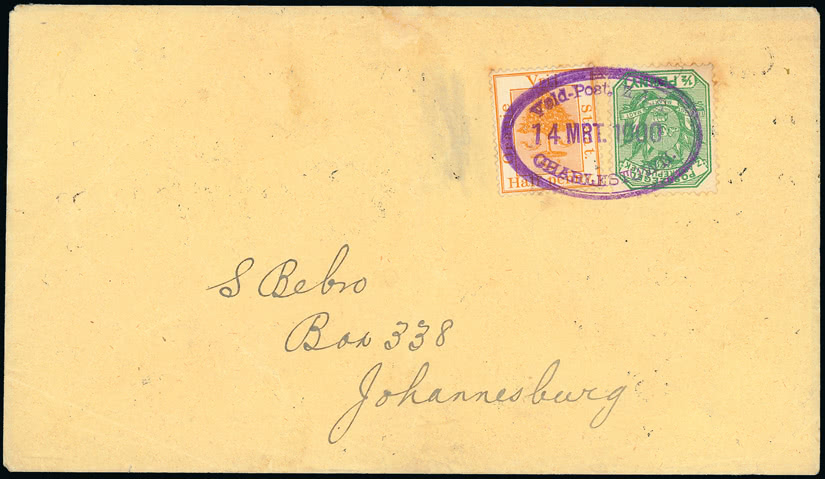 Veld-Post, Z
14 MRT. 1900
CHARLES
Vrij
Staat
Half
½ PENNY
S Bebro
Box 338
Johannesburg